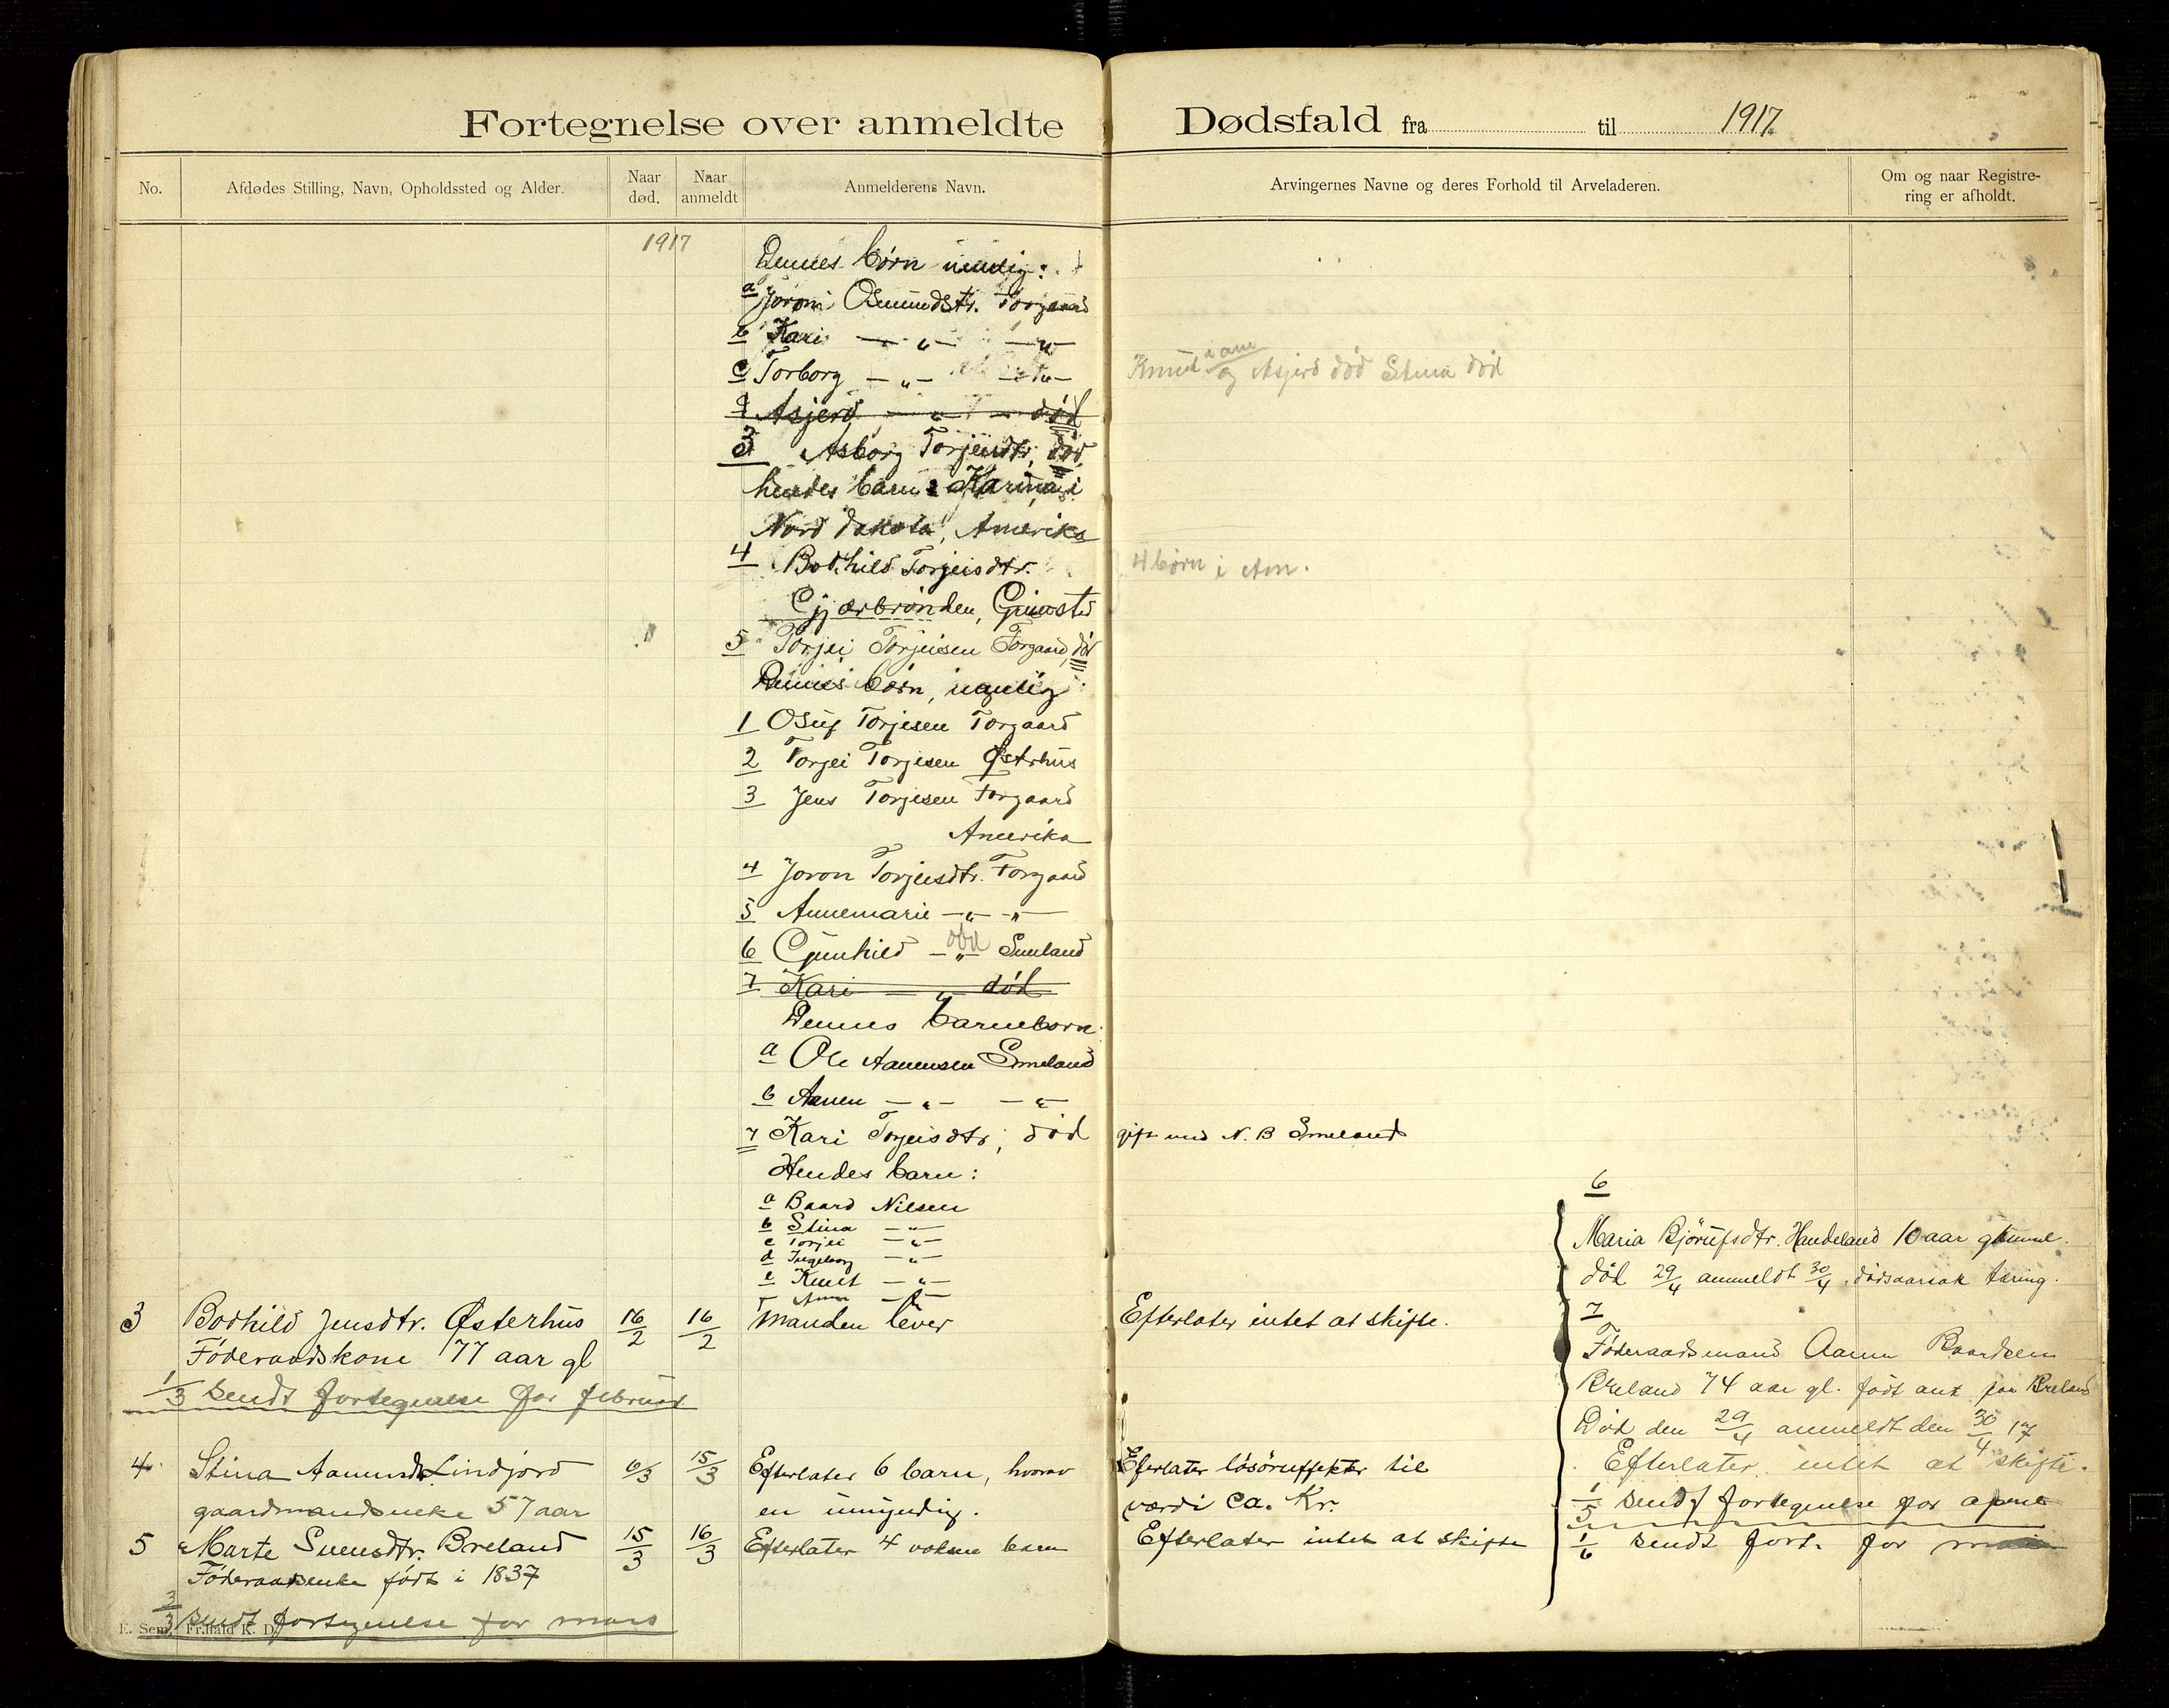 Fortegnelse over anmeldte Dødsfald fra til 1917.
No.
Afdødes Stilling, Navn, Opholdssted og Alder.
Naar død.
Naar anmeldt
Anmelderens Navn.
Arvingernes Navne og deres Forhold til Arveladeren.
Om og naar Registre-
ring er afholdt.
1917
Dennes børn nemlig:
a Joron Osmundstr. Torgaard
b Kari — " — — " —
c Torborg — " — — " —
d Asjerd — " — død
Knud i am og Asjerd død Stina død
3 Asborg Torjeisdtr. død,
hendes barn: Karina i
Nord Dakota, Amerika
4 Bodhild Torjeisdtr.
4 børn i Am.
Gjærbrönden, Grimstad
5 Torjei Torjeisen Torgaard, død
Dennes børn, nemlig
1 Osuf Torjesen Torgaard
2 Torjei Torjesen Østrhus
3 Jens Torjesen Torgaard
Amerika
4 Joron Torjeisdtr. Torgaard
5 Annemarie — " — " —
6 Gunhild — " — død Smeland
7 Kari — " død
Dennes barnebørn
a Ole Aanensen Smeland
b Aanen — " — — " —
7 Kari Torjeisdtr, død gift med N. B Smeland
Hendes barn:
a Baard Nilsen
b Stina — " —
c Torjei — " —
d Ingeborg — " —
e Knut — " —
f Anne — " —
3 Bodhild Jensdtr. Østerhus 16/2 16/2 Manden lever Efterlater intet at skifte.
Föderaadskone 77 aar gl
1/3 sendt fortegnelse for februar
4 Stina Aamunds. Lindjord 6/3 15/3 Efterlater 6 barn, hvorav Eferlater lösöreffekter til
gaardmandsenke 57 aar en umyndig. værdi ca. Kr.
5 Marte Svensdtr. Breland 15/3 16/3 Efterlater 4 voksne barn Efterlater intet at skifte
Föderaadsenke født i 1837
3/3 sendt fortegnelse for mars
E. Sem, Fr.hald K. D.
6
Maria Bjørufsdtr. Handeland 10 aar gammel.
död 29/4 anmeldt 30/4. dödsaarsak tæring.
7
Föderaadsmand Aanen Baardsen
Breland 74 aar gl. født ant. paa Breland
Død den 29/4 anmeldt den 30/4 17
Efterlater intet at skifte.
1/5 sendt fortegnelse for april
1/6 sendt fort. for mai